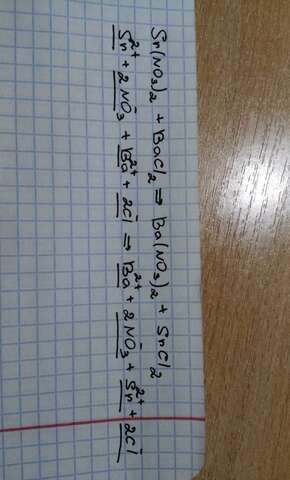 Sn(NO₃)₂ + BaCl₂ ⇒ Ba(NO₃)₂ + SnCl₂
Sn²⁺ + 2NO₃⁻ + Ba²⁺ + 2Cl⁻ ⇒ Ba²⁺ + 2NO₃⁻ + Sn²⁺ + 2Cl⁻